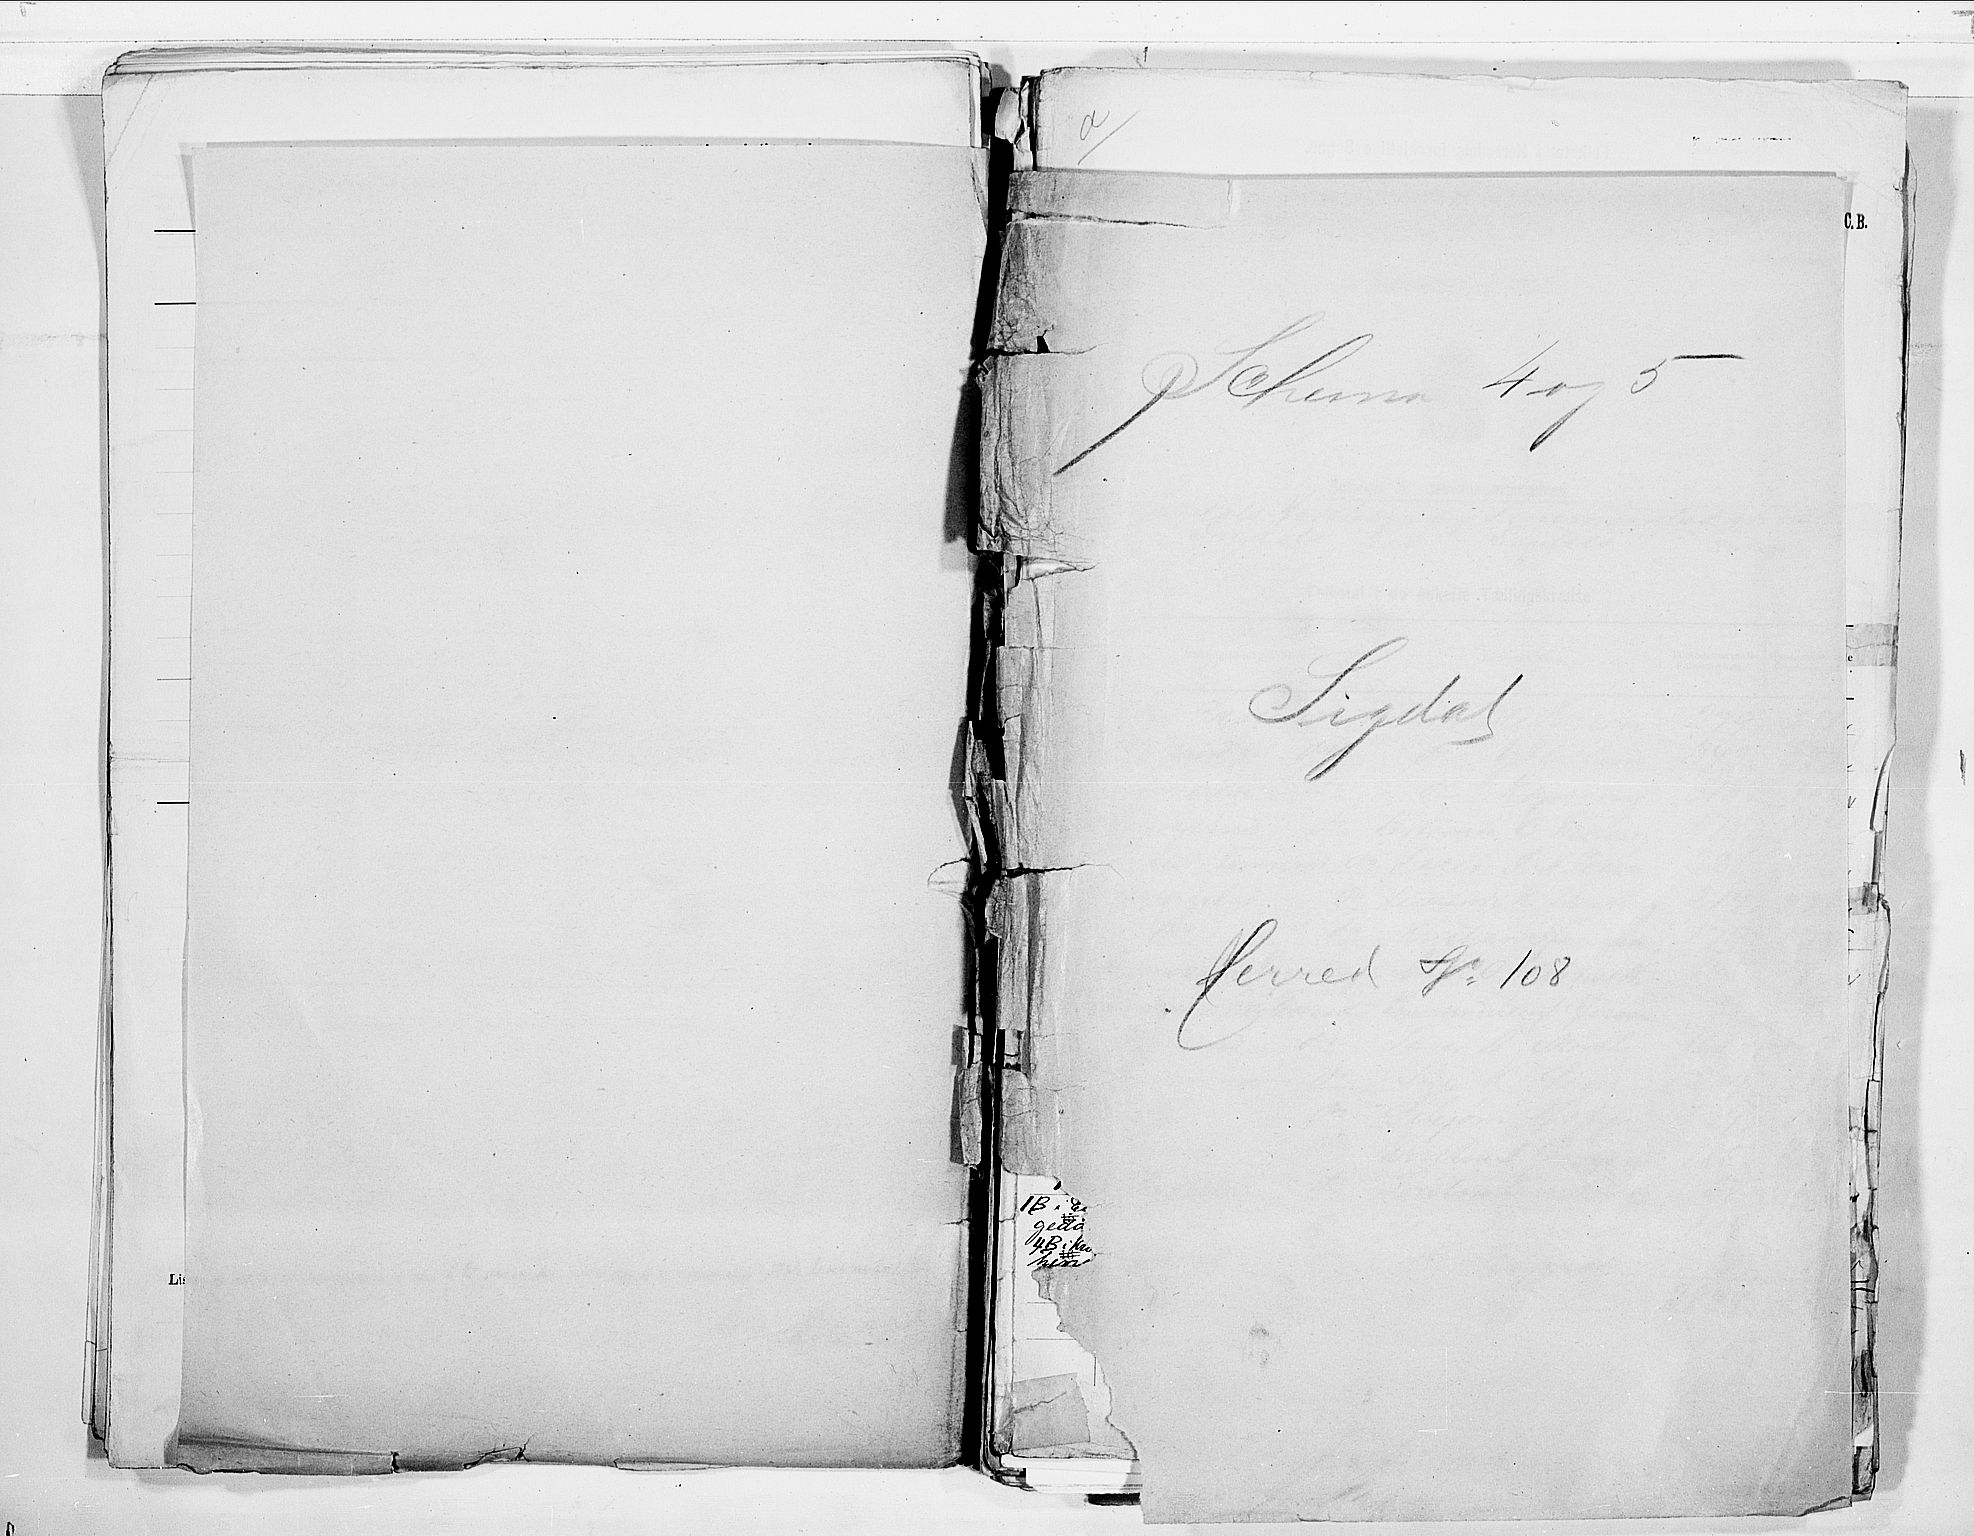 Lis
a
C. B.
Schema 4 og 5
Sigdal
Herred Nr. 108
1B i
4B i